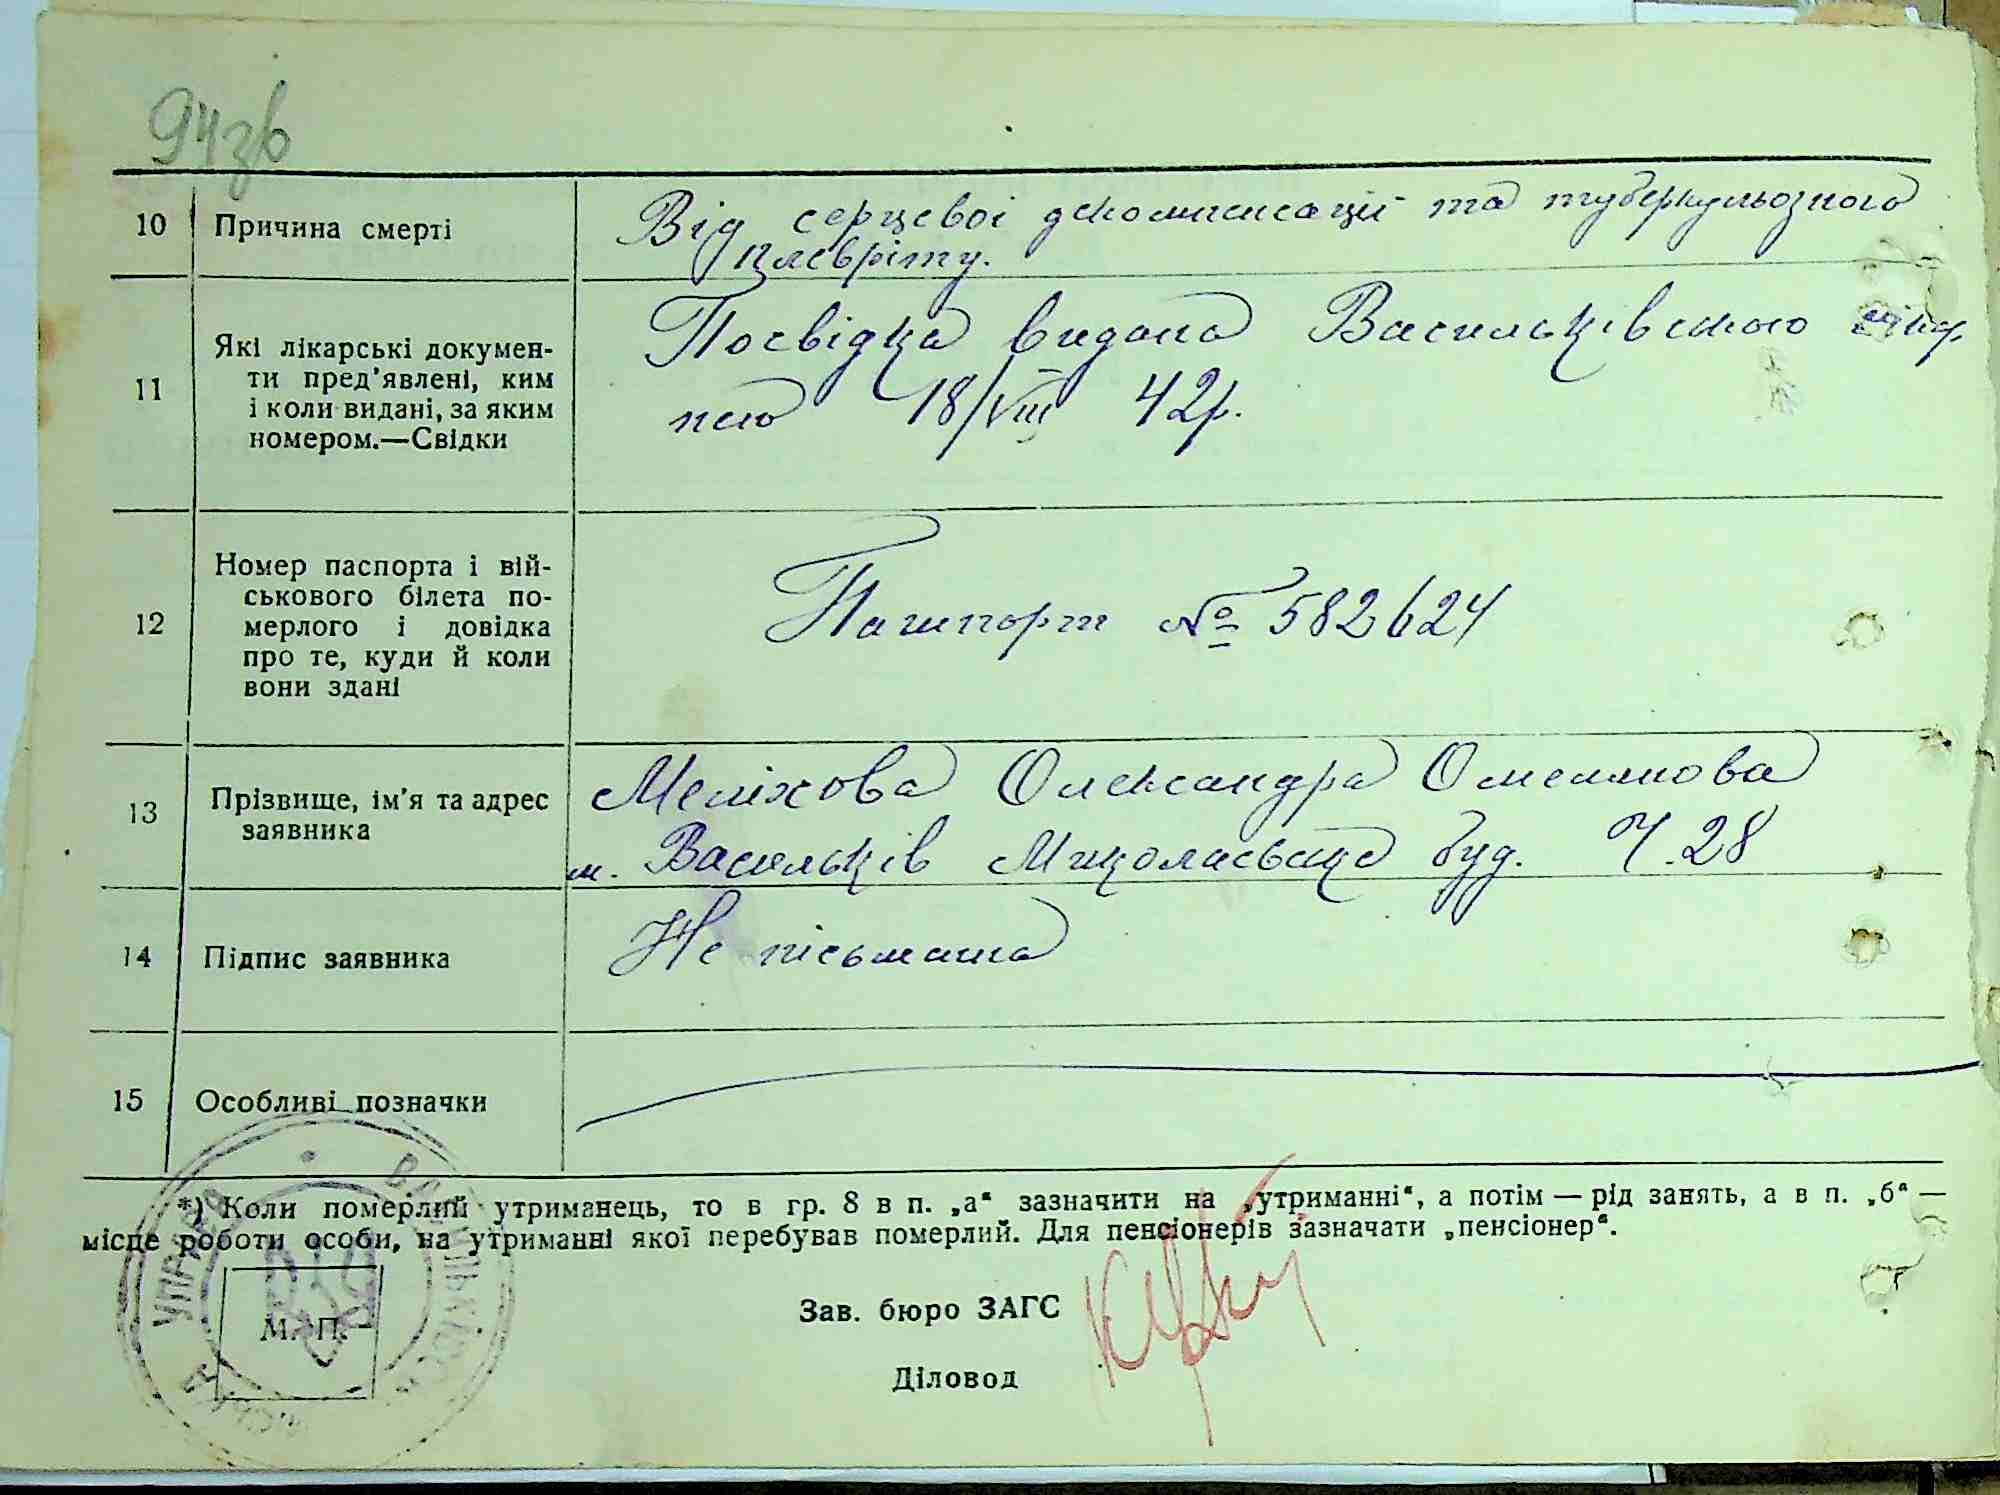 94зв
10 Причина смерті Від серцевої декомпенсації та туберкульозного
плевріту.
11 Які лікарські докумен-
ти пред’явлені, ким
і коли видані, за яким
номером.—Свідки
Посвідка видана Васильківською
18/VIII 42р.
12 Номер паспорта і вій-
ськового білета по-
мерлого і довідка
про те, куди й коли
вони здані
Пашпорт № 582624
13 Прізвище, ім’я та адрес
заявника
Меліхова Олександра Омелянова
м. Васильків Миколаєвська буд. Ч. 28
14 Підпис заявника Не письмена
15 Особливі позначки
*) Коли померлий утриманець, то в гр. 8 в п. „а“ зазначити на „утриманні“, а потім — рід занять, а в п. „б“ —
місце роботи особи, на утриманні якої перебував померлий. Для пенсіонерів зазначати „пенсіонер“.
УПРАВА
М. П.
Зав. бюро ЗАГС
Діловод